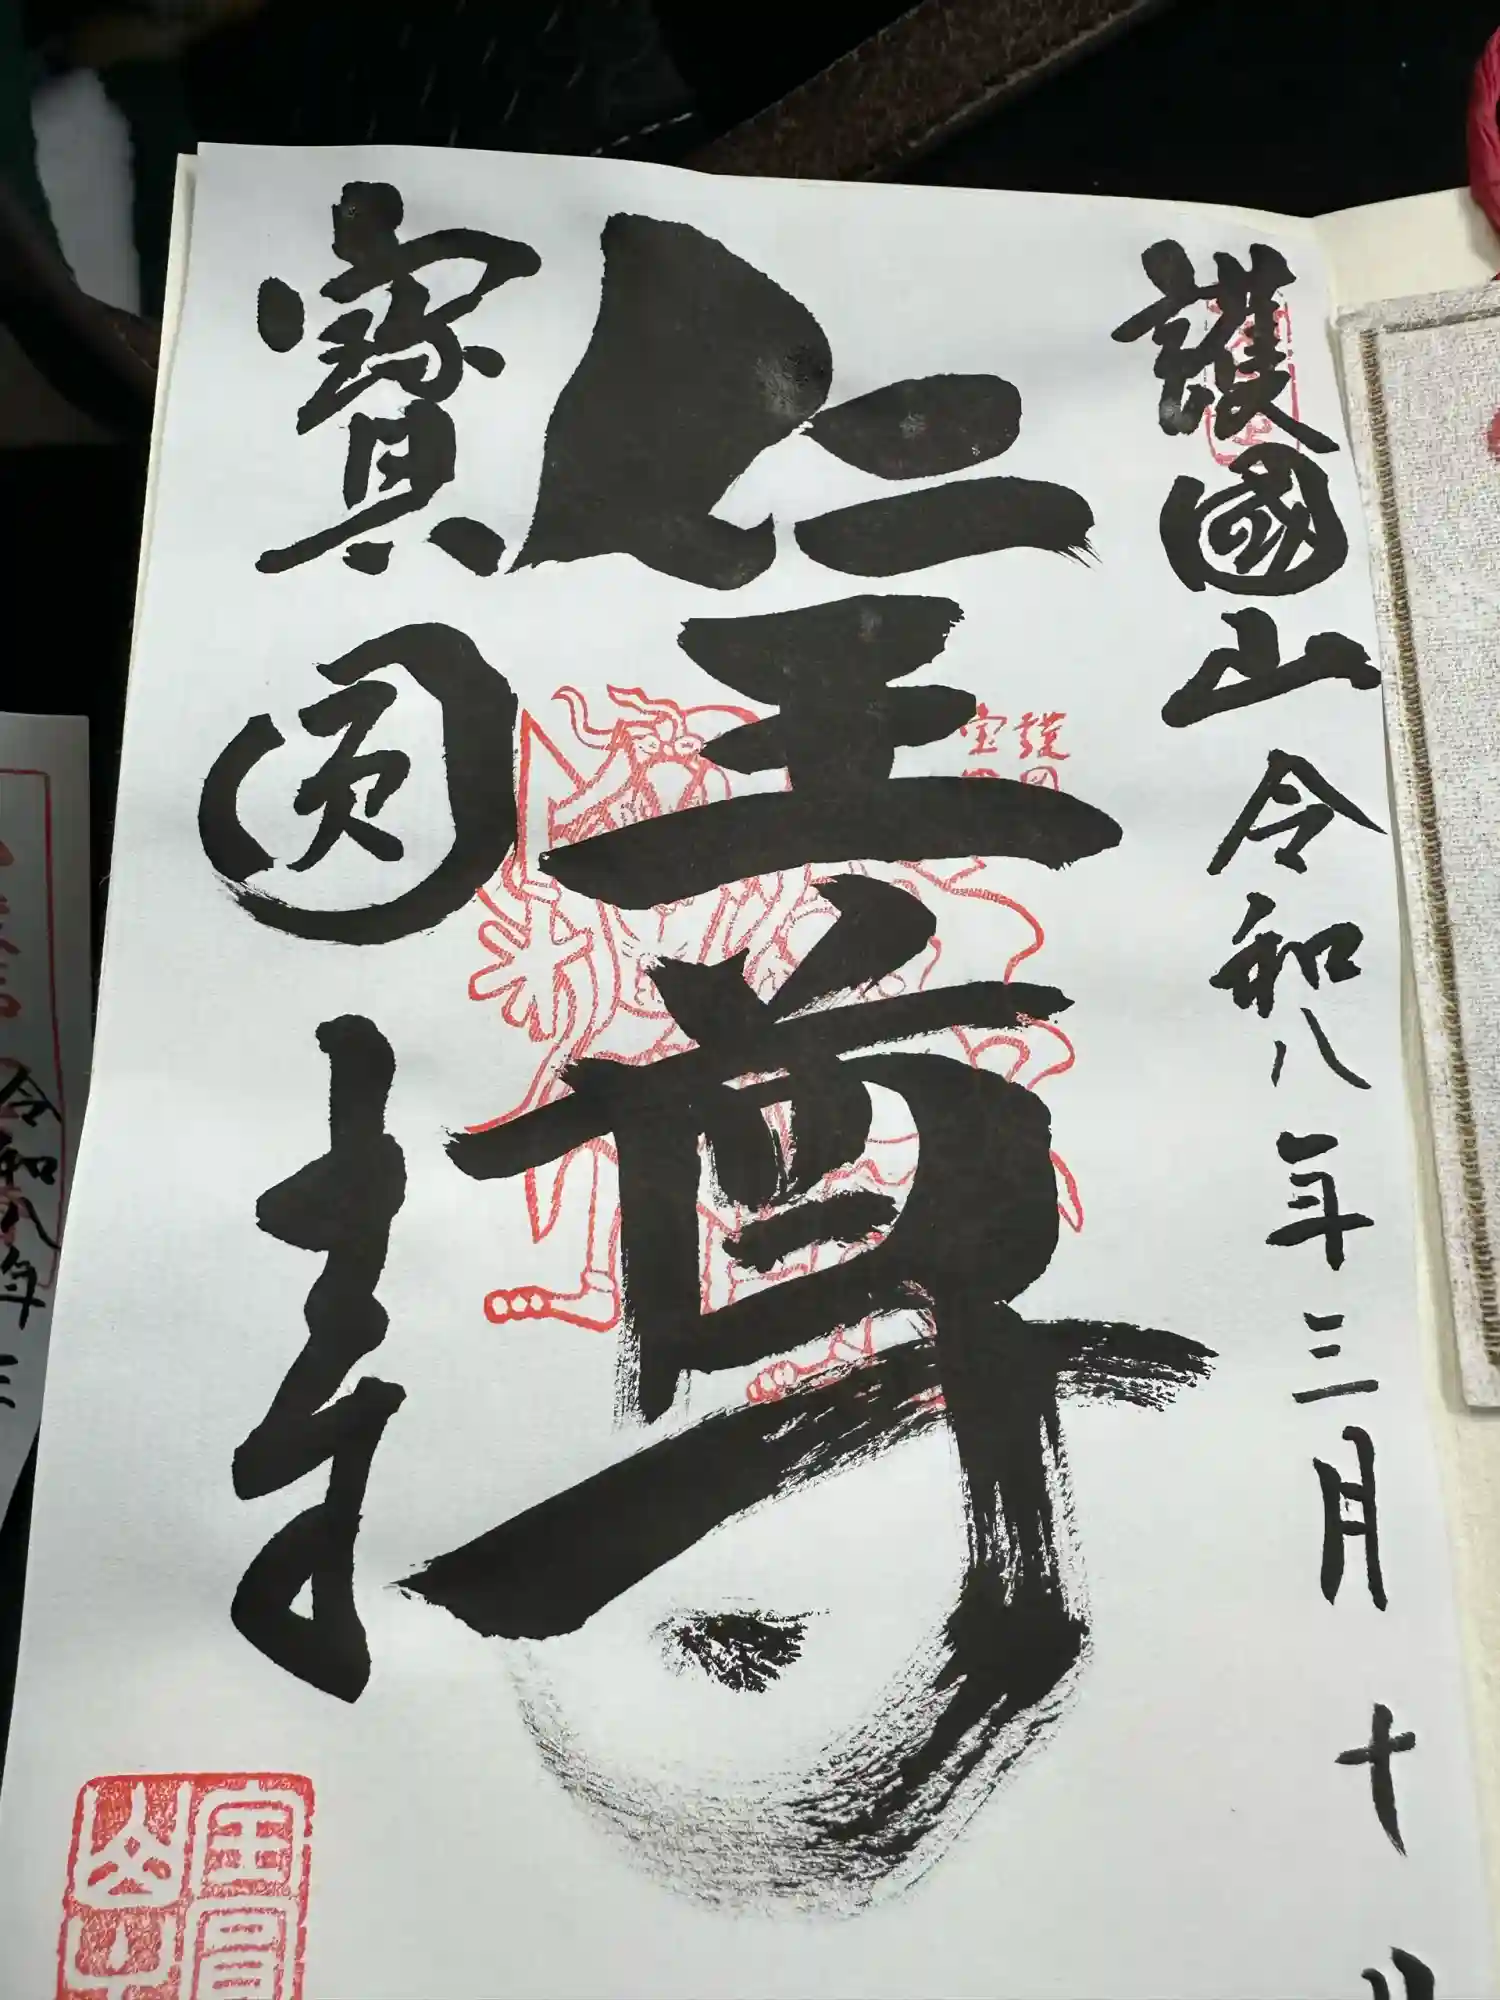 護國山 令和八年三月十日
仁王尊
寳圓寺
護国
宝
令和八年三